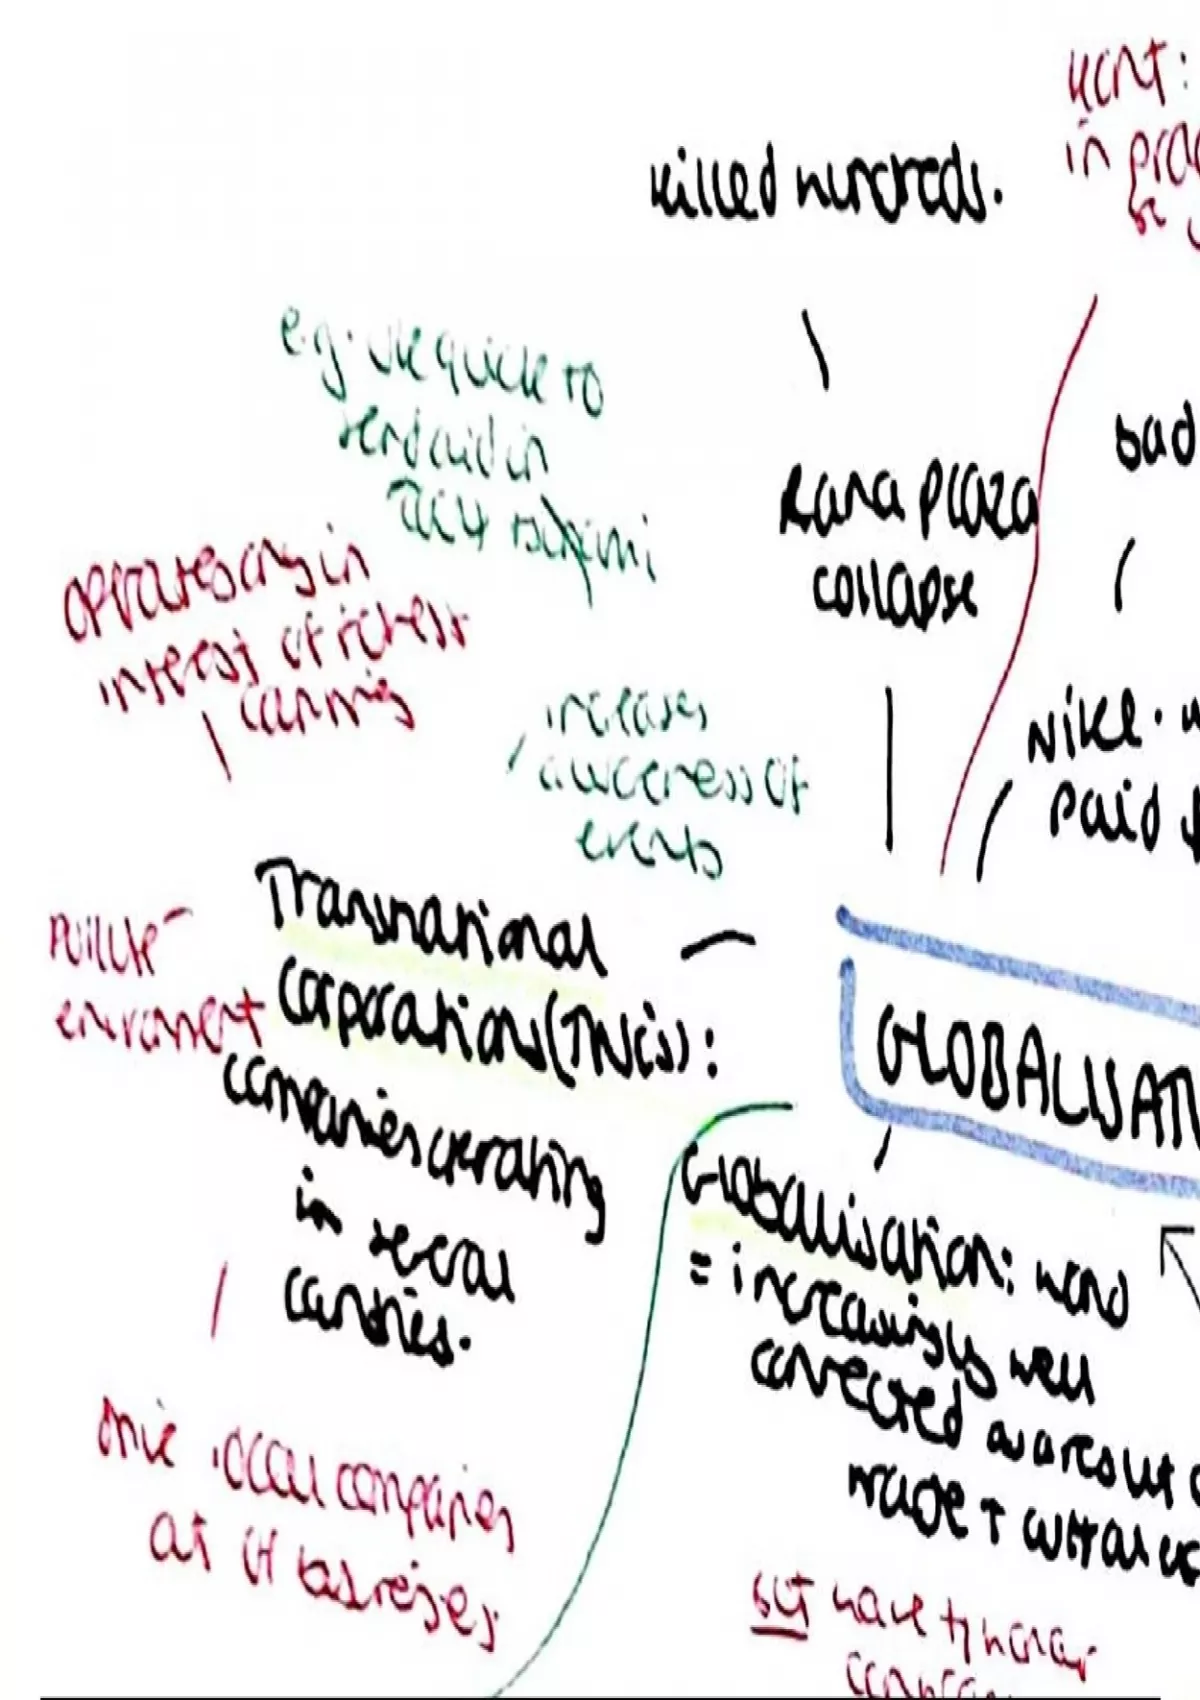 KANT:
in prod
be y
killed hundreds.
e.g. UK quick to
send aid in
2004 tsunami
Rana Plaza
collapse
bad
operates only in
interest of richest
countries
increases
awareness of
events
Nike. w
paid
Transnational
corporations (TNCs):
companies operating
in several
countries.
pollute
enviroment
GLOBALISATI
Globalisation: world
= increasingly well
connected as a result o
trade + cultural
drive local companies
out of businesses
BUT have